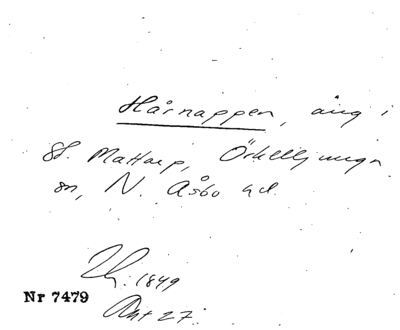 Hårnappen, äng i
St. Mattarp, Örkelljunga
sn, N. Åsbo hd.
1849
Nr 7479
Akt 27.